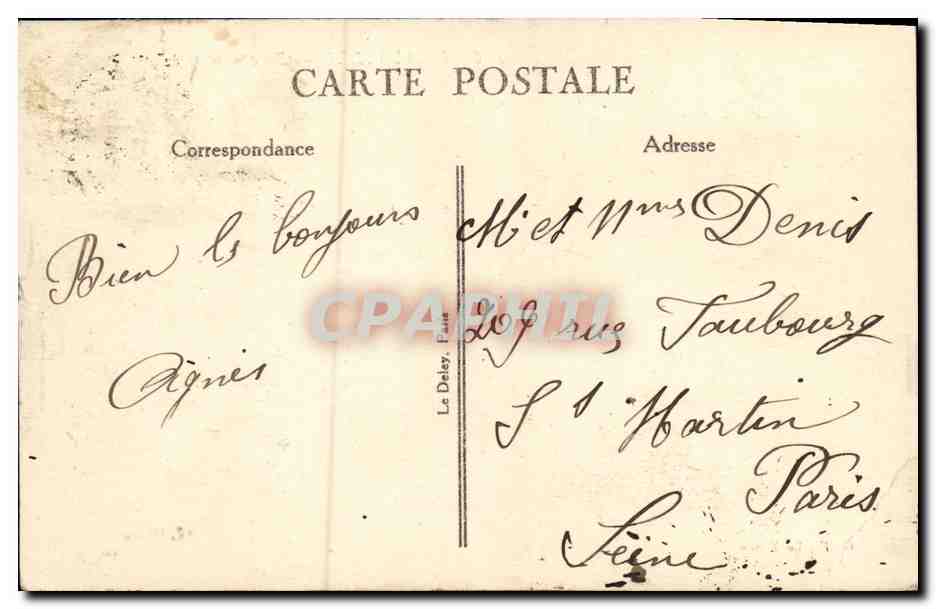 CARTE POSTALE
Correspondance
Adresse
Bien le bonjours
Agnès
Le Deley, Paris
Mr et Mme Denis
207 rue Faubourg
St Martin
Paris
Seine
CPAPHIL